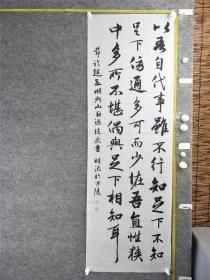 以吾自代事雖不行知足下不知
足下傍通多可而少怪吾直性狹
中多所不堪偶與足下相知耳
趙孟頫與山巨源絕交書